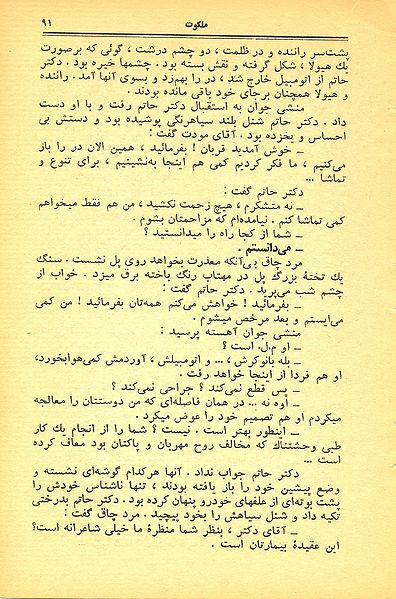 ملکوت
۹۱
پشت‌سر راننده و در ظلمت ، دو چشم درشت ، گوئی که برصورت
یك هیولا ، شکل گرفته و نقش بسته بود . چشمها خیره بود . دکتر
حاتم از اتومبیل خارج شد ، در را بهم‌زد و بسوی آنها آمد . راننده
و هیولا همچنان برجای خود باقی مانده بودند .
منشی جوان به استقبال دکتر حاتم رفت و با او دست
داد . دکتر حاتم شنل بلند سیاهرنگی پوشیده بود و دستش بی
احساس و یخزده بود . آقای مودت گفت :
ـ خوش آمدید قربان ! بفرمائید ، همین الان در را باز
می‌کنیم ، ما فکر کردیم کمی هم اینجا به‌نشینیم ، برای تنوع و
تماشا ...
دکتر حاتم گفت :
ـ نه متشکرم ، هیچ زحمت نکشید ، من هم فقط میخواهم
کمی تماشا کنم . نیامده‌ام که مزاحمتان بشوم .
ـ شما از کجا راه را میدانستید ؟
ـ می‌دانستم .
مرد چاق بی‌آنکه معذرت بخواهد روی پل نشست . سنگ
یك تختهٔ بزرگ پل در مهتاب رنگ باخته برق میزد . خواب از
چشم شب می‌پرید . دکتر حاتم گفت :
ـ بفرمائید ! خواهش می‌کنم همه‌تان بفرمائید ! من کمی
می‌ایستم و بعد مرخص میشوم .
منشی جوان آهسته پرسید :
ـ او م.ل. است ؟
ـ بله بانوکرش ، ... و اتومبیلش ، آوردمش کمی‌هوابخورد،
او هم فردا از اینجا خواهد رفت .
ـ پس قطع نمی‌کند ؟ جراحی نمی‌کند ؟
ـ اوه نه ... در همان فاصله‌ای که من دوستتان را معالجه
میکردم او هم تصمیم خود را عوض میکرد .
ـ اینطور بهتر است . نیست ؟ شما را از انجام یك کار
طبی وحشتناك که مخالف روح مهربان و پاکتان بود معاف کرده
است ...
دکتر حاتم جواب نداد . آنها هرکدام گوشه‌ای نشسته و
وضع پیشین خود را باز یافته بودند ، تنها ناشناس خودش را
پشت بوته‌ای از علفهای خودرو پنهان کرده بود . دکتر حاتم بدرختی
تکیه داد و شنل سیاهش را بخود پیچید . مرد چاق گفت :
ـ آقای دکتر ، بنظر شما منظرهٔ ما خیلی شاعرانه است؟
این عقیدهٔ بیمارتان است .